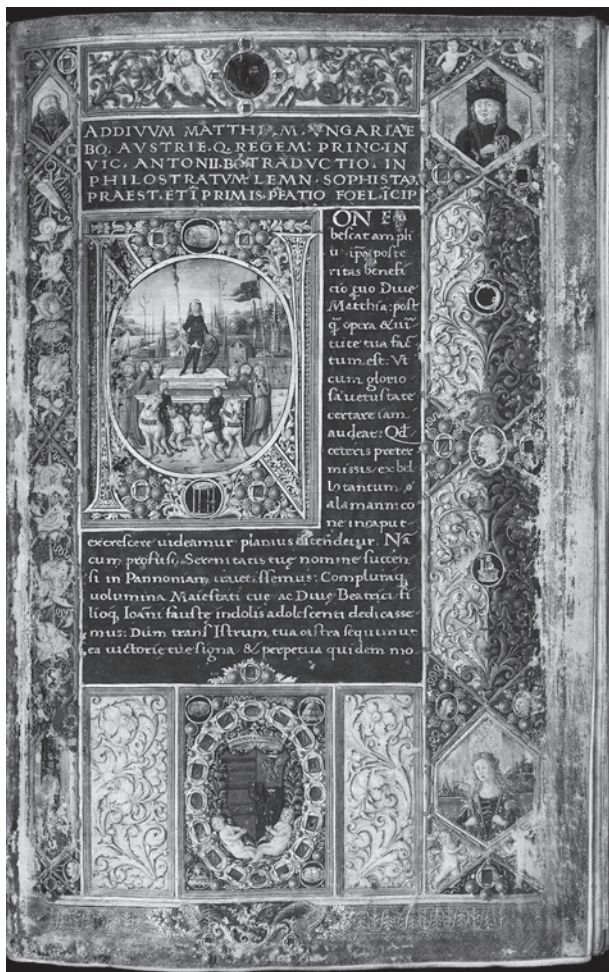 AD DIVVM MATTHIA.M.VNGARIAE
BO. AVSTRIE.Q.REGEM: PRINC.IN
VIC. ANTONII.BŌ TRADVCTIO. IN
PHILOSTRATVM LEMN. SOPHISTAȜ,
PRAEST. ET Ī PRIMIS. P̄FATIO FOEL.ĪCIP
ON Eru
bescat ampli
ipa poste
ritas benefi
cio quo Diue
Matthia: post
q̄ opera & uir
tute tua fac
tum est: Vt
cum glorio
sa uetustate
certare iam
audeat: Qd
ceteris preter
missis ex bel
lo tantum
alamann: co
ne in caput
excrescere uideamur planius ostendetur. Nā
cum profusi. Serenitatis tue nomine succen
si in Pannoniam: Compluraq;
uolumina Maiestati tue ac Diue Beatrici fi
lioq; Ioāni fauste indolis adolescenti dedicasse
mus: Dum trans Istrum, tua castra sequimur
ea uictorie tue signa & perpetua quidem mo